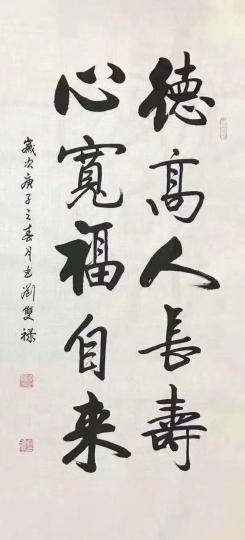 德高人長壽
心寬福自来
歲次庚子之春月書劉雙禄